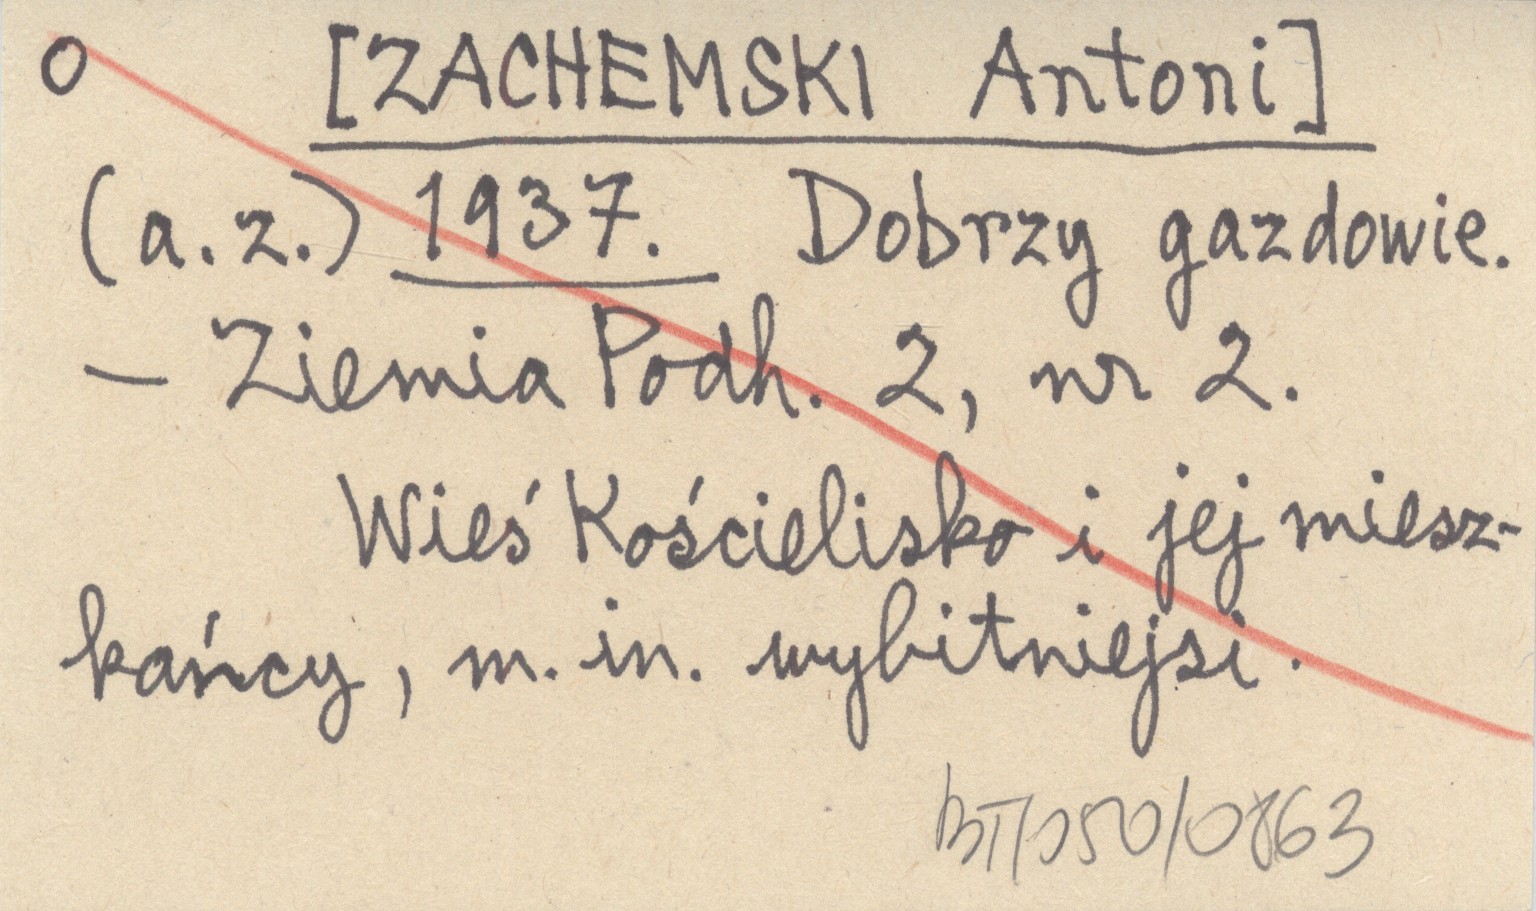 O [ZACHEMSKI Antoni]
(a.z.) 1937. Dobrzy gazdowie.
— Ziemia Podh. 2, nr 2.
Wieś Kościelisko i jej miesz-
kańcy, m. in. wybitniejsi.